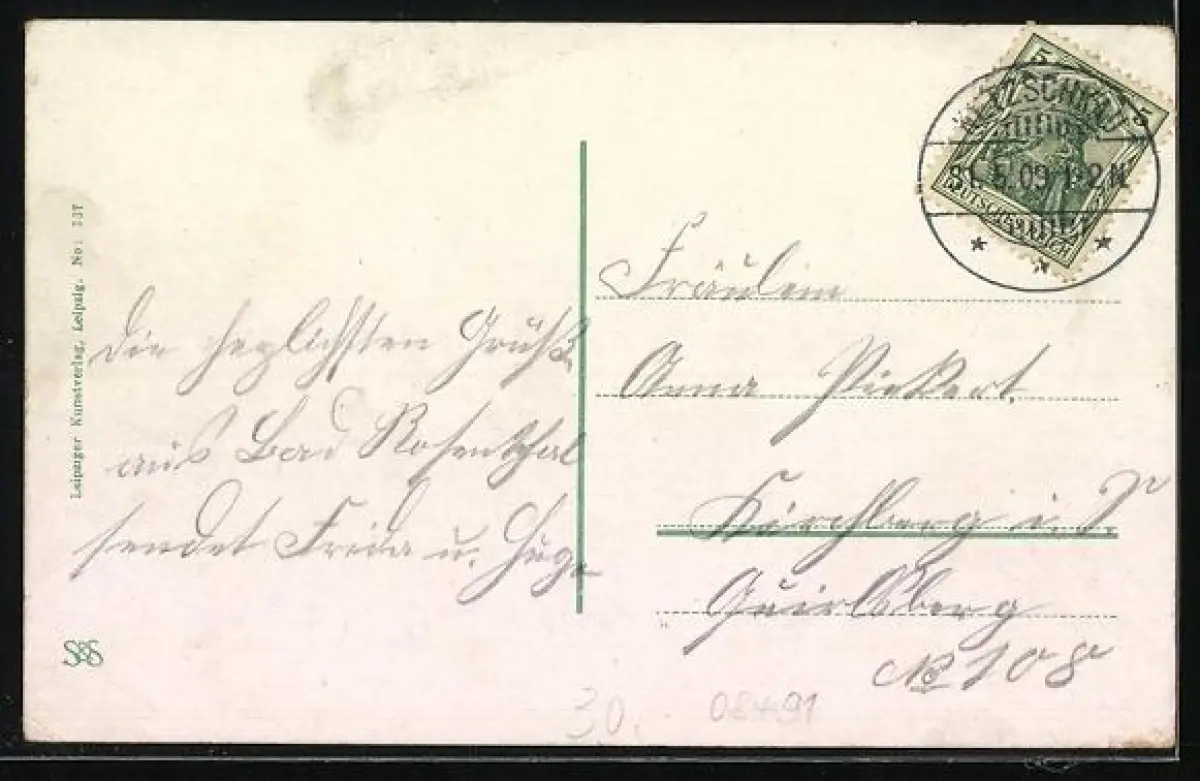 Leipziger Kunstverlag, Leipzig. No: 137
Die herzlichsten Grüße
aus Bad Rosenthal
sendet Frida u. Hugo
S&S
5 5
NETZSCHKAU
31.5.09.1-2N.
DEUTSCHES REICH
Fräulein
Anna Pickert,
Kirchberg i. S.
Quirlsberg
No 108
30.
08491